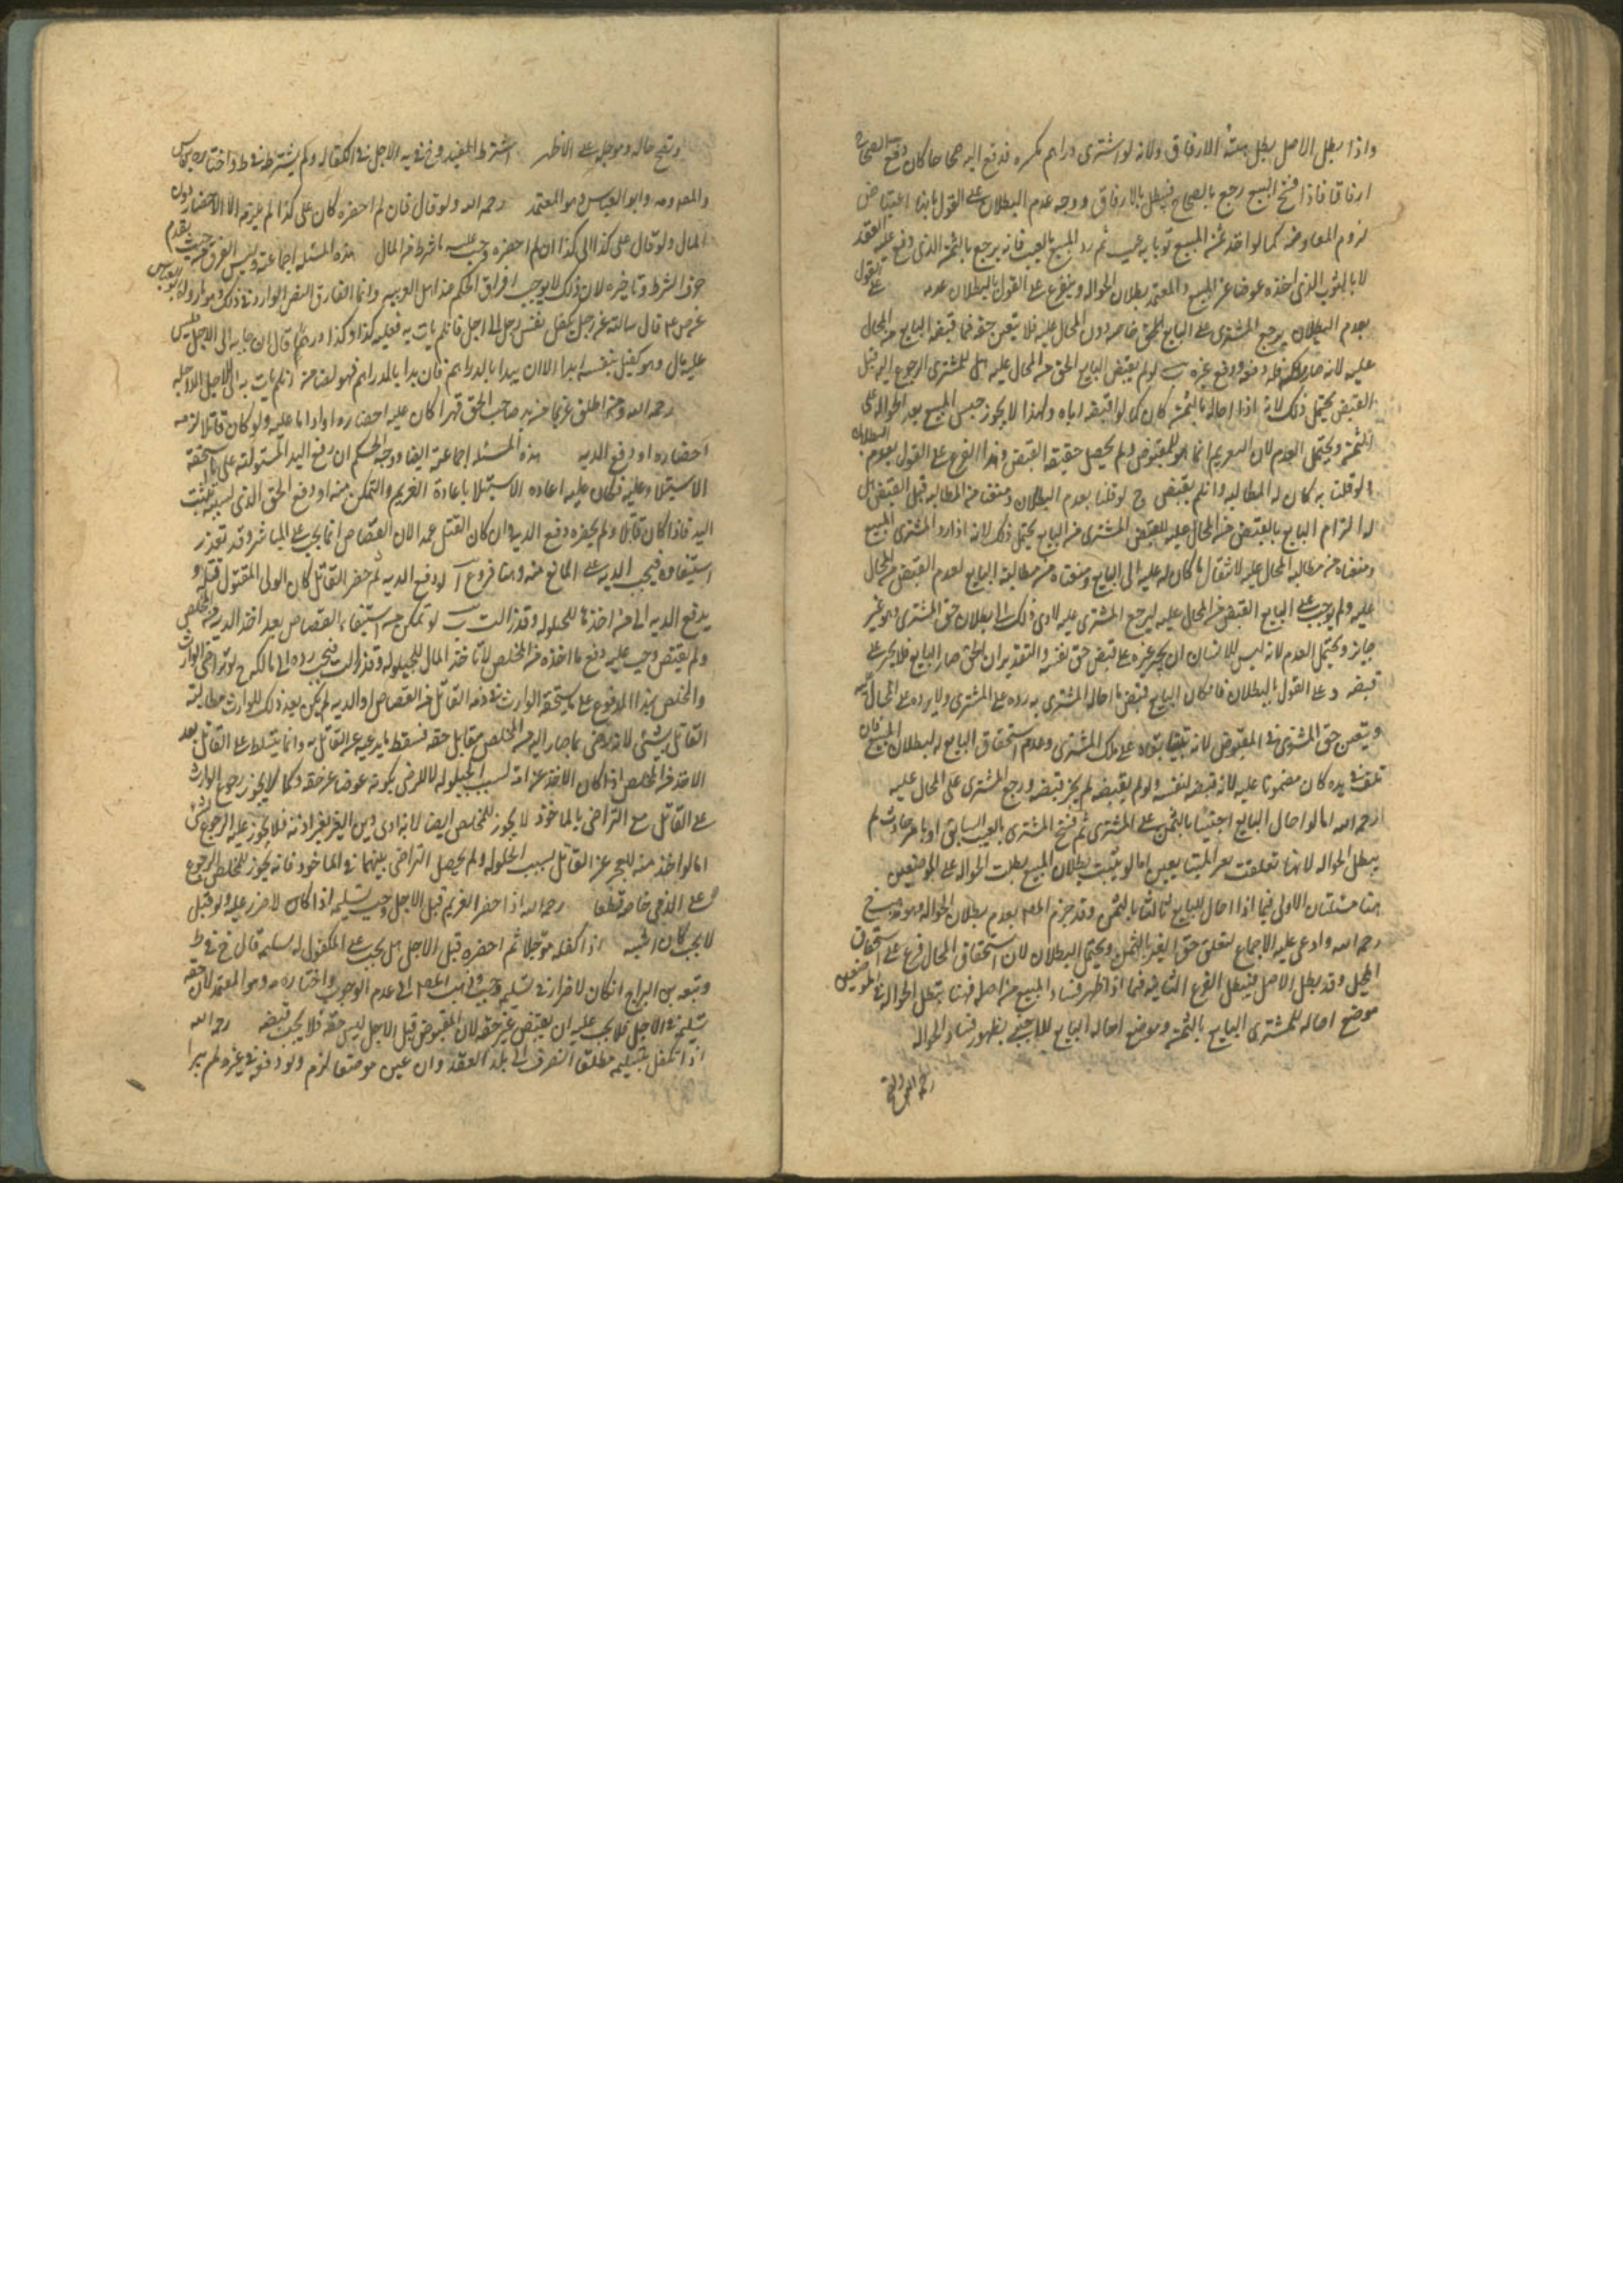 واذا بطل الاصل بطل هيئة الارفاق ولانه لو اشترى دراهم مكسره فدفع اليه صحاحا كان دفع الصحاح
ارفاقا فاذا فسخ البيع رجع بالصحاح فيبطل بالارفاق ووجه عدم البطلان على القول بانها اعتياض
لزوم المعاوضة كما لو اخذ عن المبيع ثوبا به عيب ثم رد المبيع بالعيب فانه يرجع بالثمن الذي وقع عليه العقد
لا بالثوب الذي اخذه عوضا عن المبيع والمعتمد بطلان الحواله ويتفرع على القول بالبطلان عدمه على القول
بعدم البطلان يرجع المشترى على البايع بالحق خاصه دون المحال عليه فلا يتعين حقه فيما قبضه البايع من المحال
عليه لانه صار له دفعه ودفع غيره ب لو لم يقبض البايع الحق من المحال عليه هل للمشترى الرجوع اليه قبل
القبض يحتمل ذلك لانه اذا احاله بالثمن كان كما لو اقبضه اياه ولهذا لا يجوز حبس المبيع بعد الحواله على
الثمن ويحتمل العدم لان التغريم انما هو للمقبوض ولم يحصل حقيقة القبض وهذا الفرع على القول بعدم البطلان
ولو قلنا به كان له المطالبه وان لم يقبض ج لو قلنا بعدم البطلان ومنعنا من المطالبه قبل القبض هل
له الزام البايع بالقبض من المحال عليه ليقبض المشترى من البايع يحتمل ذلك لانه اذا رد المشترى المبيع
ومنعناه من مطالبة المحال عليه لانتقال ما كان له عليه الى البايع ومنعناه من مطالبة البايع لعدم القبض من المحال
عليه ولم نوجب على البايع القبض من المحال عليه ليرجع المشترى عليه لادى ذلك الى بطلان حق المشترى وهو غير
جايز ويحتمل العدم لانه ليس للانسان ان يجبر غيره على قبض حق نفسه والتقدير ان الحق صار للبايع فلا يجبر على
قبضه د على القول بالبطلان فان كان البايع قبض ما احاله المشترى به رده على المشترى ولا يرده على المحال عليه
ويتعين حق المشترى في المقبوض لانه بقاؤه على ملك المشترى وعدم استحقاق البايع له لبطلان المبيع فان
تلف في يده كان مضمونا عليه لانه قبضه لنفسه ولو لم يقبضه لم يجز قبضه ورجع المشترى على المحال عليه
رحمه الله اما لو احال البايع اجنبيا بالثمن على المشترى ثم فسخ المشترى بالعيب السابق او بامر حادث لم
يبطل الحواله لانها تعلقت بغير المتبايعين اما لو ثبت بطلان المبيع بطلت الحواله على الموضعين
هنا مسئلتان الاولى فيما اذا احال البايع ثالثا بالثمن وقد جزم المص بعدم بطلان الحواله وهو مذهب الشيخ
رحمه الله وادعى عليه الاجماع لتعلق حق الغير بالثمن ويحتمل البطلان لان استحقاق المحال فرع على استحقاق
المحيل وقد بطل الاصل فيبطل الفرع الثانيه فيما اذا ظهر فساد المبيع من اصله فهنا تبطل الحواله في الموضعين
موضع احالة المشترى البايع بالثمن وموضع احالة البايع للاجنبي بظهور فساد الحواله
وتصح حاله وموجله على الاظهر اشترط المفيد وفي النهايه الاجل في الكفاله ولم يشترطه في ط واختاره ابن ادريس
والمص ومه وابو العباس وهو المعتمد رحمه الله ولو قال فان لم احضره كان على كذا لم يلزمه الا الاحضار دون
المال ولو قال على كذا الى كذا ان لم احضره وجب عليه ما شرط من المال هذه المسئله اجماعيه وليس الفرق من حيث تقدم
حرف الشرط وتاخيره لان ذلك لا يوجب افتراق الحكم عند اهل العربيه وانما الفارق النص الوارد في ذلك وهو ما رواه ابو العباس
عن ص ع قال سالته عن رجل كفل بنفس رجل الى اجل فان لم يات به فعليه كذا وكذا درهما قال ان جا به الى الاجل فليس
عليه مال وهو كفيل بنفسه ابدا الا ان يبدا بالدراهم فان بدا بالدراهم فهو له ضامن ان لم يات به الى الاجل الذي اجله
رحمه الله ومن اطلق غريما من يد صاحب الحق قهرا كان عليه احضاره او ادا ما عليه ولو كان قاتلا لزمه
احضاره او دفع الديه هذه المسئله اجماعيه ايضا ووجه الحكم ان رفع اليد المستوليه على ما يستحقه
الاستيلاء عليه فكان عليه اعاده الاستيلا باعادة الغريم والتمكن منه او دفع الحق الذي بسببه تثبت
اليد فاذا كان قاتلا ولم يحضره دفع الديه وان كان القتل عمدا لان القصاص انما يجب على المباشر وقد تعذر
استيفاؤه فيجب الديه على المانع منه وهنا فروع آ لو دفع الديه ثم حضر القاتل كان لولى المقتول قتله و
يدفع الديه الى من اخذها للحيلوله وقد زالت ب لو تمكن من استيفاء القصاص بعد اخذ الديه من المخلص
ولم يقتص وجب عليه دفع ما اخذه من المخلص لانه اخذ المال للحيلوله وقد زالت فيجب رده الى مالكه ج لو تراضى الوارث
والمخلص بهذا المدفوع على ما يستحقه الوارث في ذمة القاتل من القصاص او الديه لم يكن بعد ذلك للوارث مطالبة
القاتل بشئ لانه رضى بما صار اليه من المخلص مقابل حقه فسقط ما يدعيه على القاتل به وانما يتسلط على القاتل بعد
الاخذ من المخلص اذا كان الاخذ غرامة لسبب الحيلوله لا للرضى بكونه عوضا عن حقه وكما لا يجوز رجوع الوارث
على القاتل مع التراضى بالماخوذ لا يجوز للمخلص ايضا لانه ادى دين الغير بغير اذنه فلا يجوز عليه الرجوع بشئ
اما لو اخذ منه للعجز عن القاتل بسبب الحيلوله ولم يحصل التراضى بينهما في الماخوذ فانه يجوز للمخلص الرجوع
على الذى خلصه قطعا رحمه الله اذا احضر الغريم قبل الاجل وجب تسليمه اذا كان لا ضرر عليه ولو قيل
لا يجب كان اشبه اذا كفله مؤجلا ثم احضره قبل الاجل هل يجب على المكفول له تسلمه قال الشيخ في ط
وتبعه بن البراج ان كان لا ضرار في تسليمه وجب وذهب المص الى عدم الوجوب واختاره مه وهو المعتمد لان حقه
تسليمه في الاجل فلا يجب عليه ان يقبض غير حقه لان المقبوض قبل الاجل ليس حقه فلا يجب قبضه رحمه الله
اذا تكفل بتسليمه مطلقا انصرف الى بلد العقد وان عين موضعا لزم ولو دفعه في غيره لم يبرا